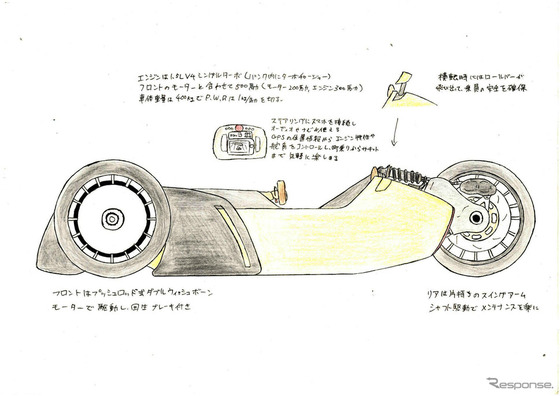 エンジンは1.2L V4 シングルターボ(バンク内にターボチャージャー)
フロントのモーターと合わせて500馬力(モーター200馬力、エンジン300馬力)
車体重量は400kgで P.W.Rは1kg/psを切る。
横転時にはロールバーが
飛び出て乗員の安全を確保
ステアリングにスマホを接続し
オーディオやナビが使える
GPSの位置情報からエンジン特性や
をコントロールし、街乗りからサーキット
まで気軽に楽しめる
フロントはプッシュロッド式ダブルウィッシュボーン
モーターで駆動し、回生ブレーキ付き
リアは片持ちのスイングアーム
シャフト駆動でメンテナンスを楽に
Response.